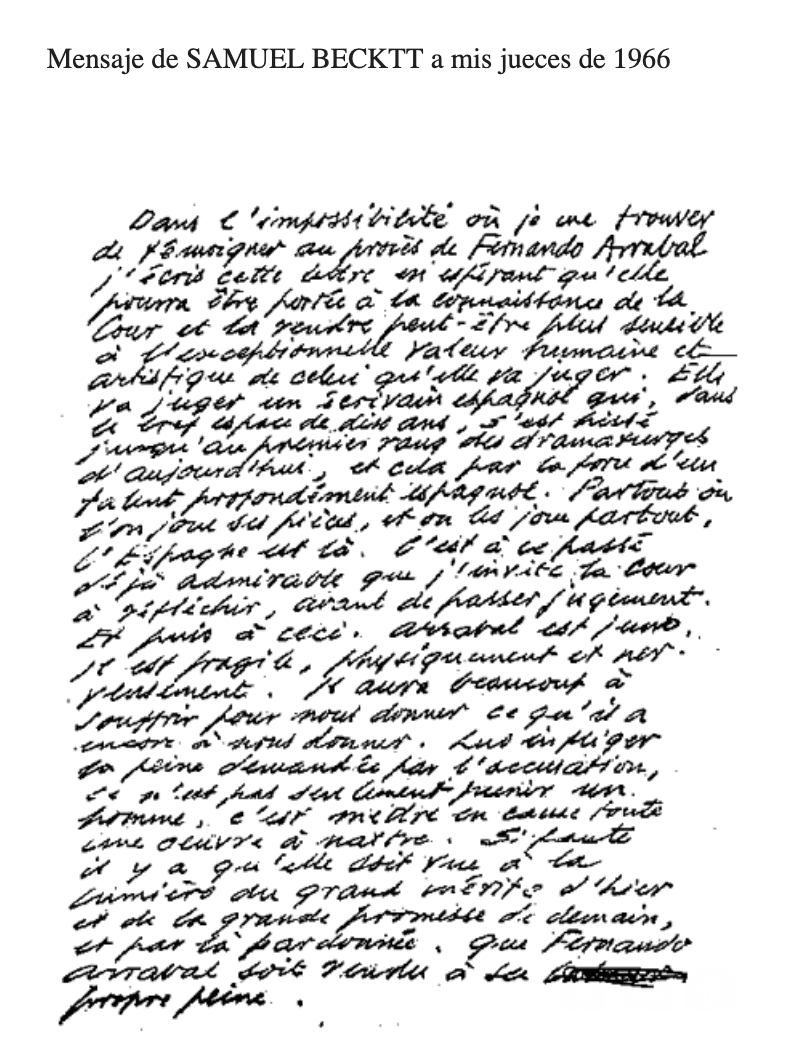 Mensaje de SAMUEL BECKTT a mis jueces de 1966
Dans l'impossibilité où je me trouver
de témoigner au procès de Fernando Arrabal
j'écris cette lettre en espérant qu'elle
pourra être portée à la connaissance de la
Cour et la rendre peut-être plus sensible
à l'exceptionnelle valeur humaine et
artistique de celui qu'elle va juger. Elle
va juger un écrivain espagnol qui, dans
le bref espace de dix ans, s'est hissé
jusqu'au premier rang des dramaturges
d'aujourd'hui, et cela par la force d'un
talent profondément espagnol. Partout où
l'on joue ses pièces, et on les joue partout,
l'Espagne est là. C'est à ce passé
déjà admirable que j'invite la Cour
à réfléchir, avant de passer jugement.
Et puis à ceci. Arrabal est jeune.
Il est fragile, physiquement et ner-
veusement. Il aura beaucoup à
souffrir pour nous donner ce qu'il a
encore à nous donner. Lui infliger
la peine demandée par l'accusation,
ce n'est pas seulement punir un
homme, c'est mettre en cause toute
une oeuvre à naître. Si faute
il y a qu'elle soit vue à la
lumière du grand mérite d'hier
et de la grande promesse de demain,
et par là pardonnée. Que Fernando
Arrabal soit rendu à sa
propre peine.